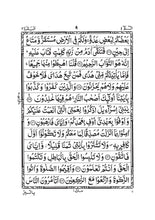 لِبَعْضٍ عَدُوٌّ ۚ وَلَكُمْ فِي الْأَرْضِ مُسْتَقَرٌّ وَّمَتَاعٌ
إِلَىٰ حِينٍ ۝ فَتَلَقَّىٰ آدَمُ مِن رَّبِّهِ كَلِمَاتٍ فَتَابَ عَلَيْهِ ۚ
إِنَّهُ هُوَ التَّوَّابُ الرَّحِيمُ ۝ قُلْنَا اهْبِطُوا مِنْهَا جَمِيعًا ۚ
فَإِمَّا يَأْتِيَنَّكُم مِّنِّي هُدًى فَمَن تَبِعَ هُدَايَ فَلَا خَوْفٌ
عَلَيْهِمْ وَلَا هُمْ يَحْزَنُونَ ۝ وَالَّذِينَ كَفَرُوا وَكَذَّبُوا
بِآيَاتِنَا أُولَٰئِكَ أَصْحَابُ النَّارِ ۚ هُمْ فِيهَا خَالِدُونَ ۝
يَا بَنِي إِسْرَائِيلَ اذْكُرُوا نِعْمَتِيَ الَّتِي أَنْعَمْتُ عَلَيْكُمْ
وَأَوْفُوا بِعَهْدِي أُوفِ بِعَهْدِكُمْ ۚ وَإِيَّايَ فَارْهَبُونِ ۝
وَآمِنُوا بِمَا أَنزَلْتُ مُصَدِّقًا لِّمَا مَعَكُمْ وَلَا تَكُونُوا أَوَّلَ
كَافِرٍ بِهِ ۖ وَلَا تَشْتَرُوا بِآيَاتِي ثَمَنًا قَلِيلًا ۖ وَإِيَّايَ
فَاتَّقُونِ ۝ وَلَا تَلْبِسُوا الْحَقَّ بِالْبَاطِلِ وَتَكْتُمُوا
الْحَقَّ وَأَنتُمْ تَعْلَمُونَ ۝ وَأَقِيمُوا الصَّلَاةَ وَآتُوا
الزَّكَاةَ وَارْكَعُوا مَعَ الرَّاكِعِينَ ۝ أَتَأْمُرُونَ النَّاسَ